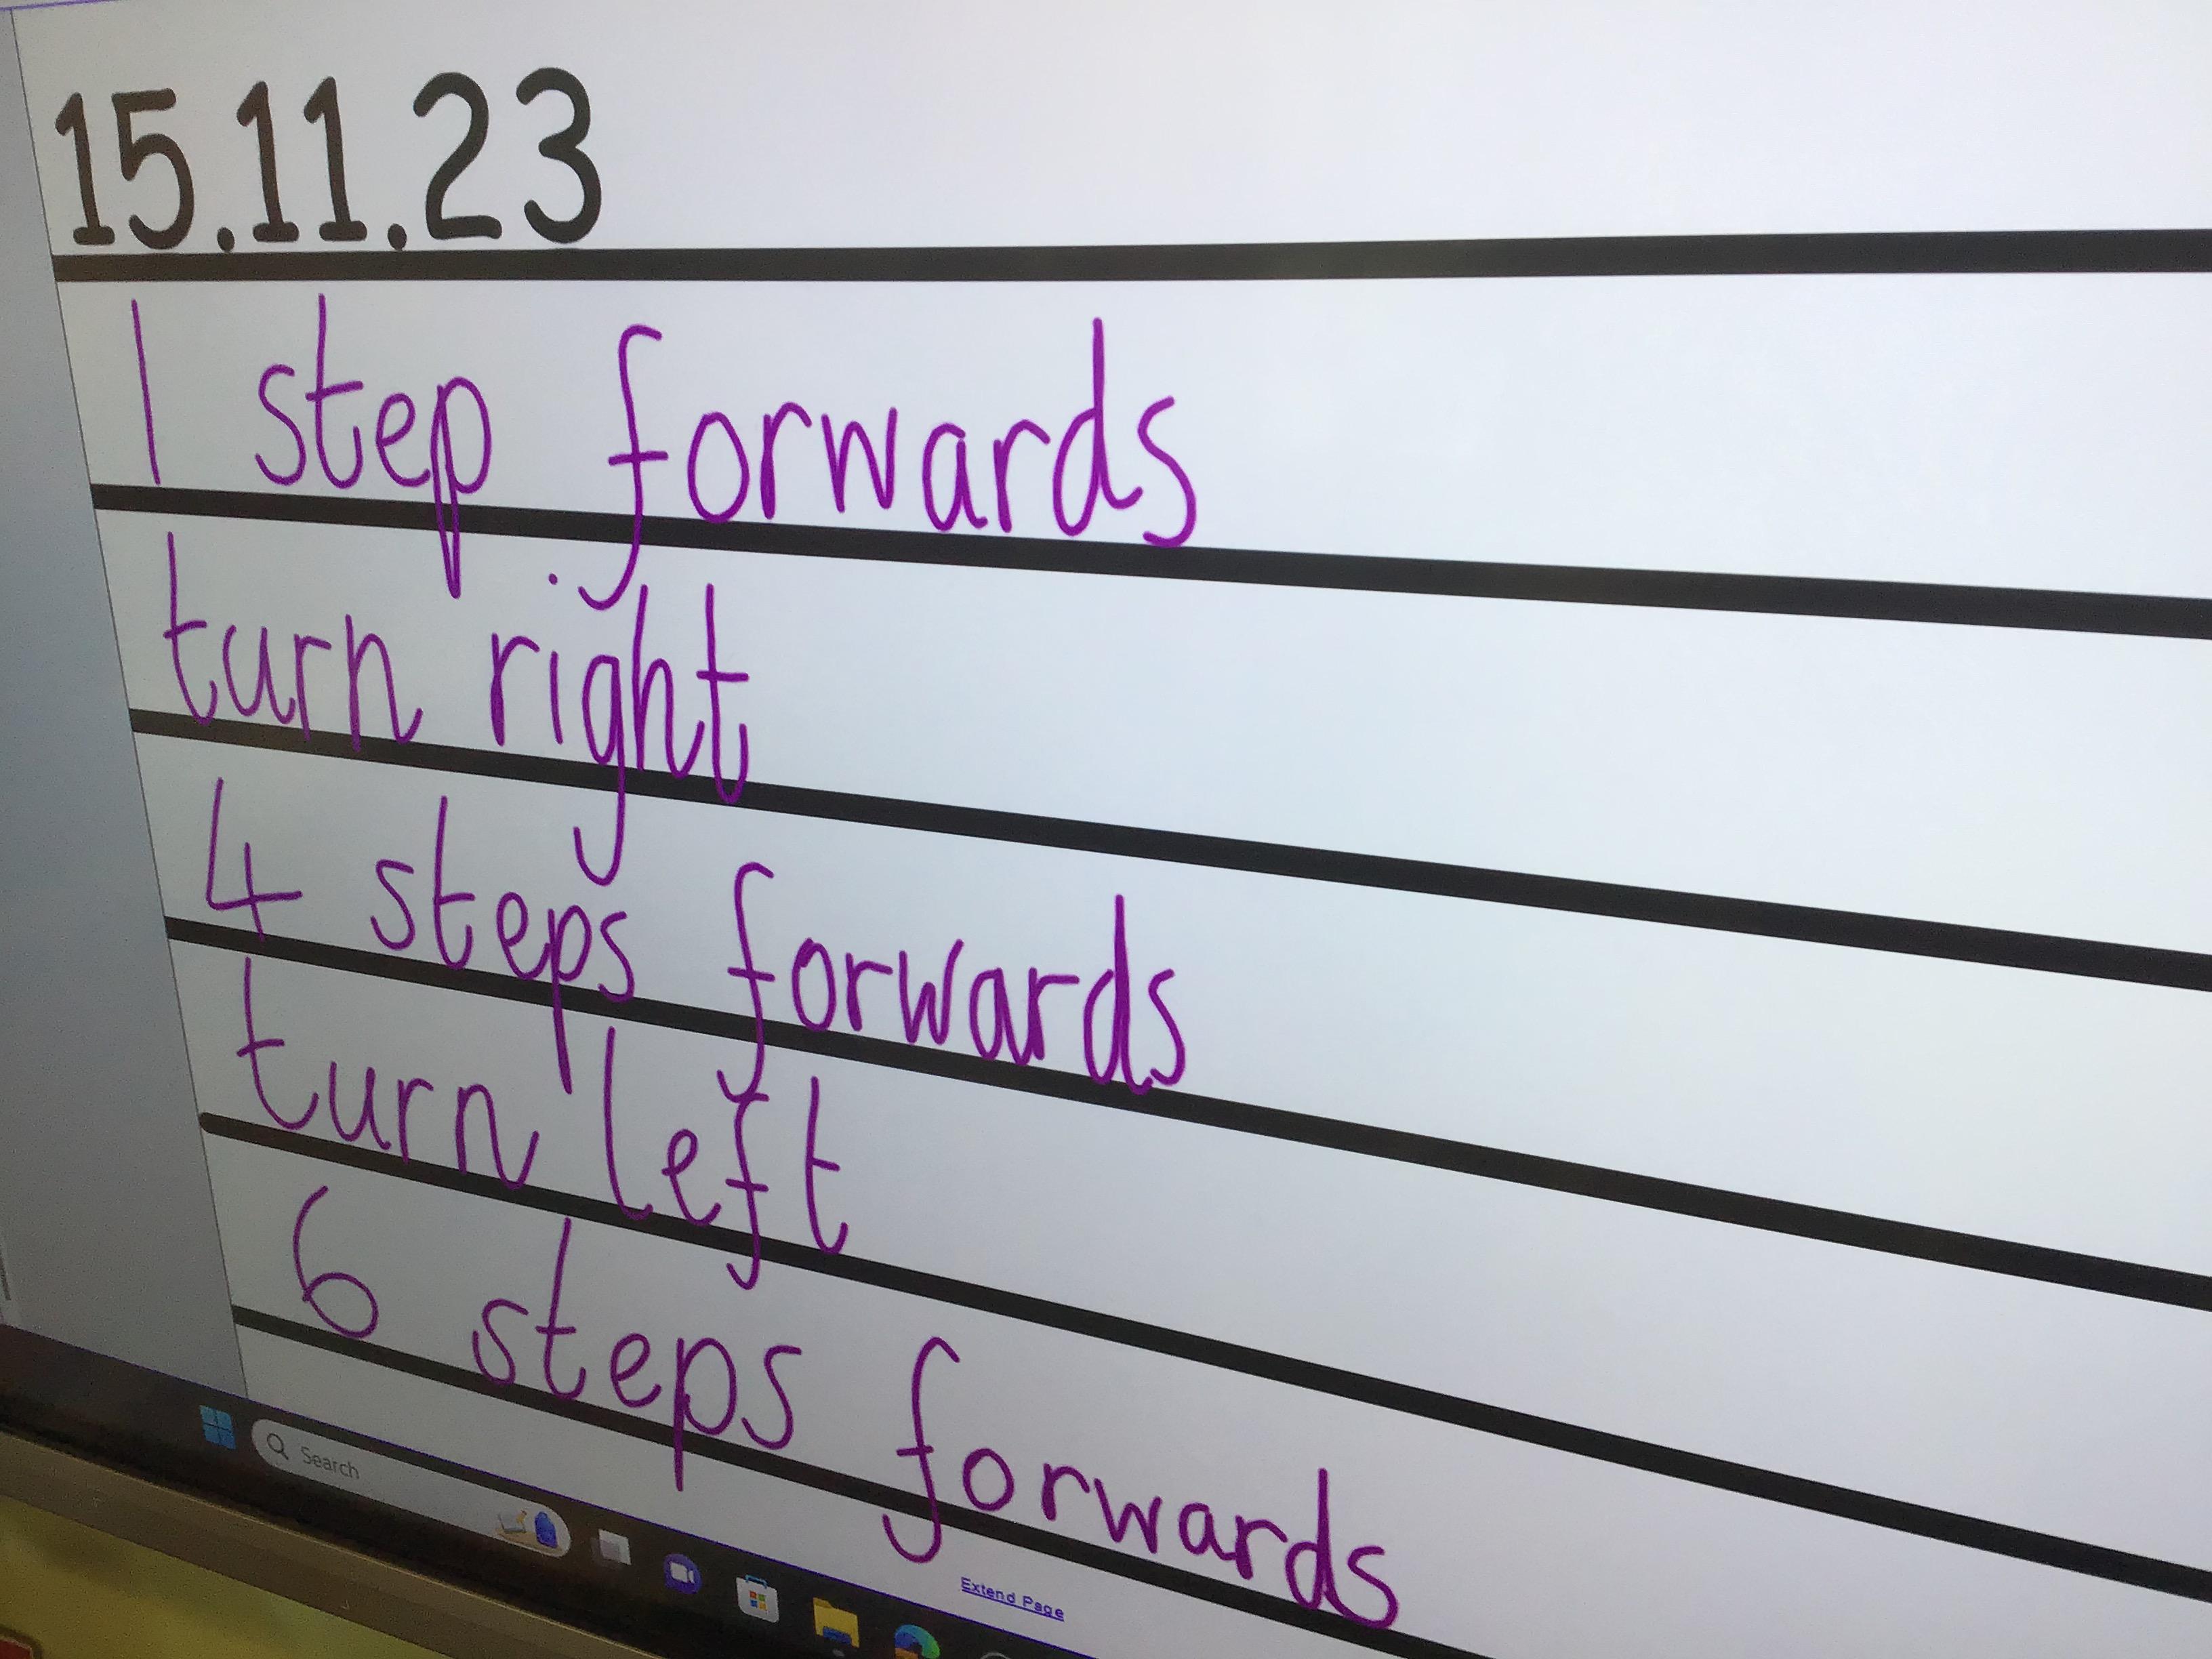 15.11.23
1 step forwards
turn right
4 steps forwards
turn left
6 steps forwards
Search
Extend Page